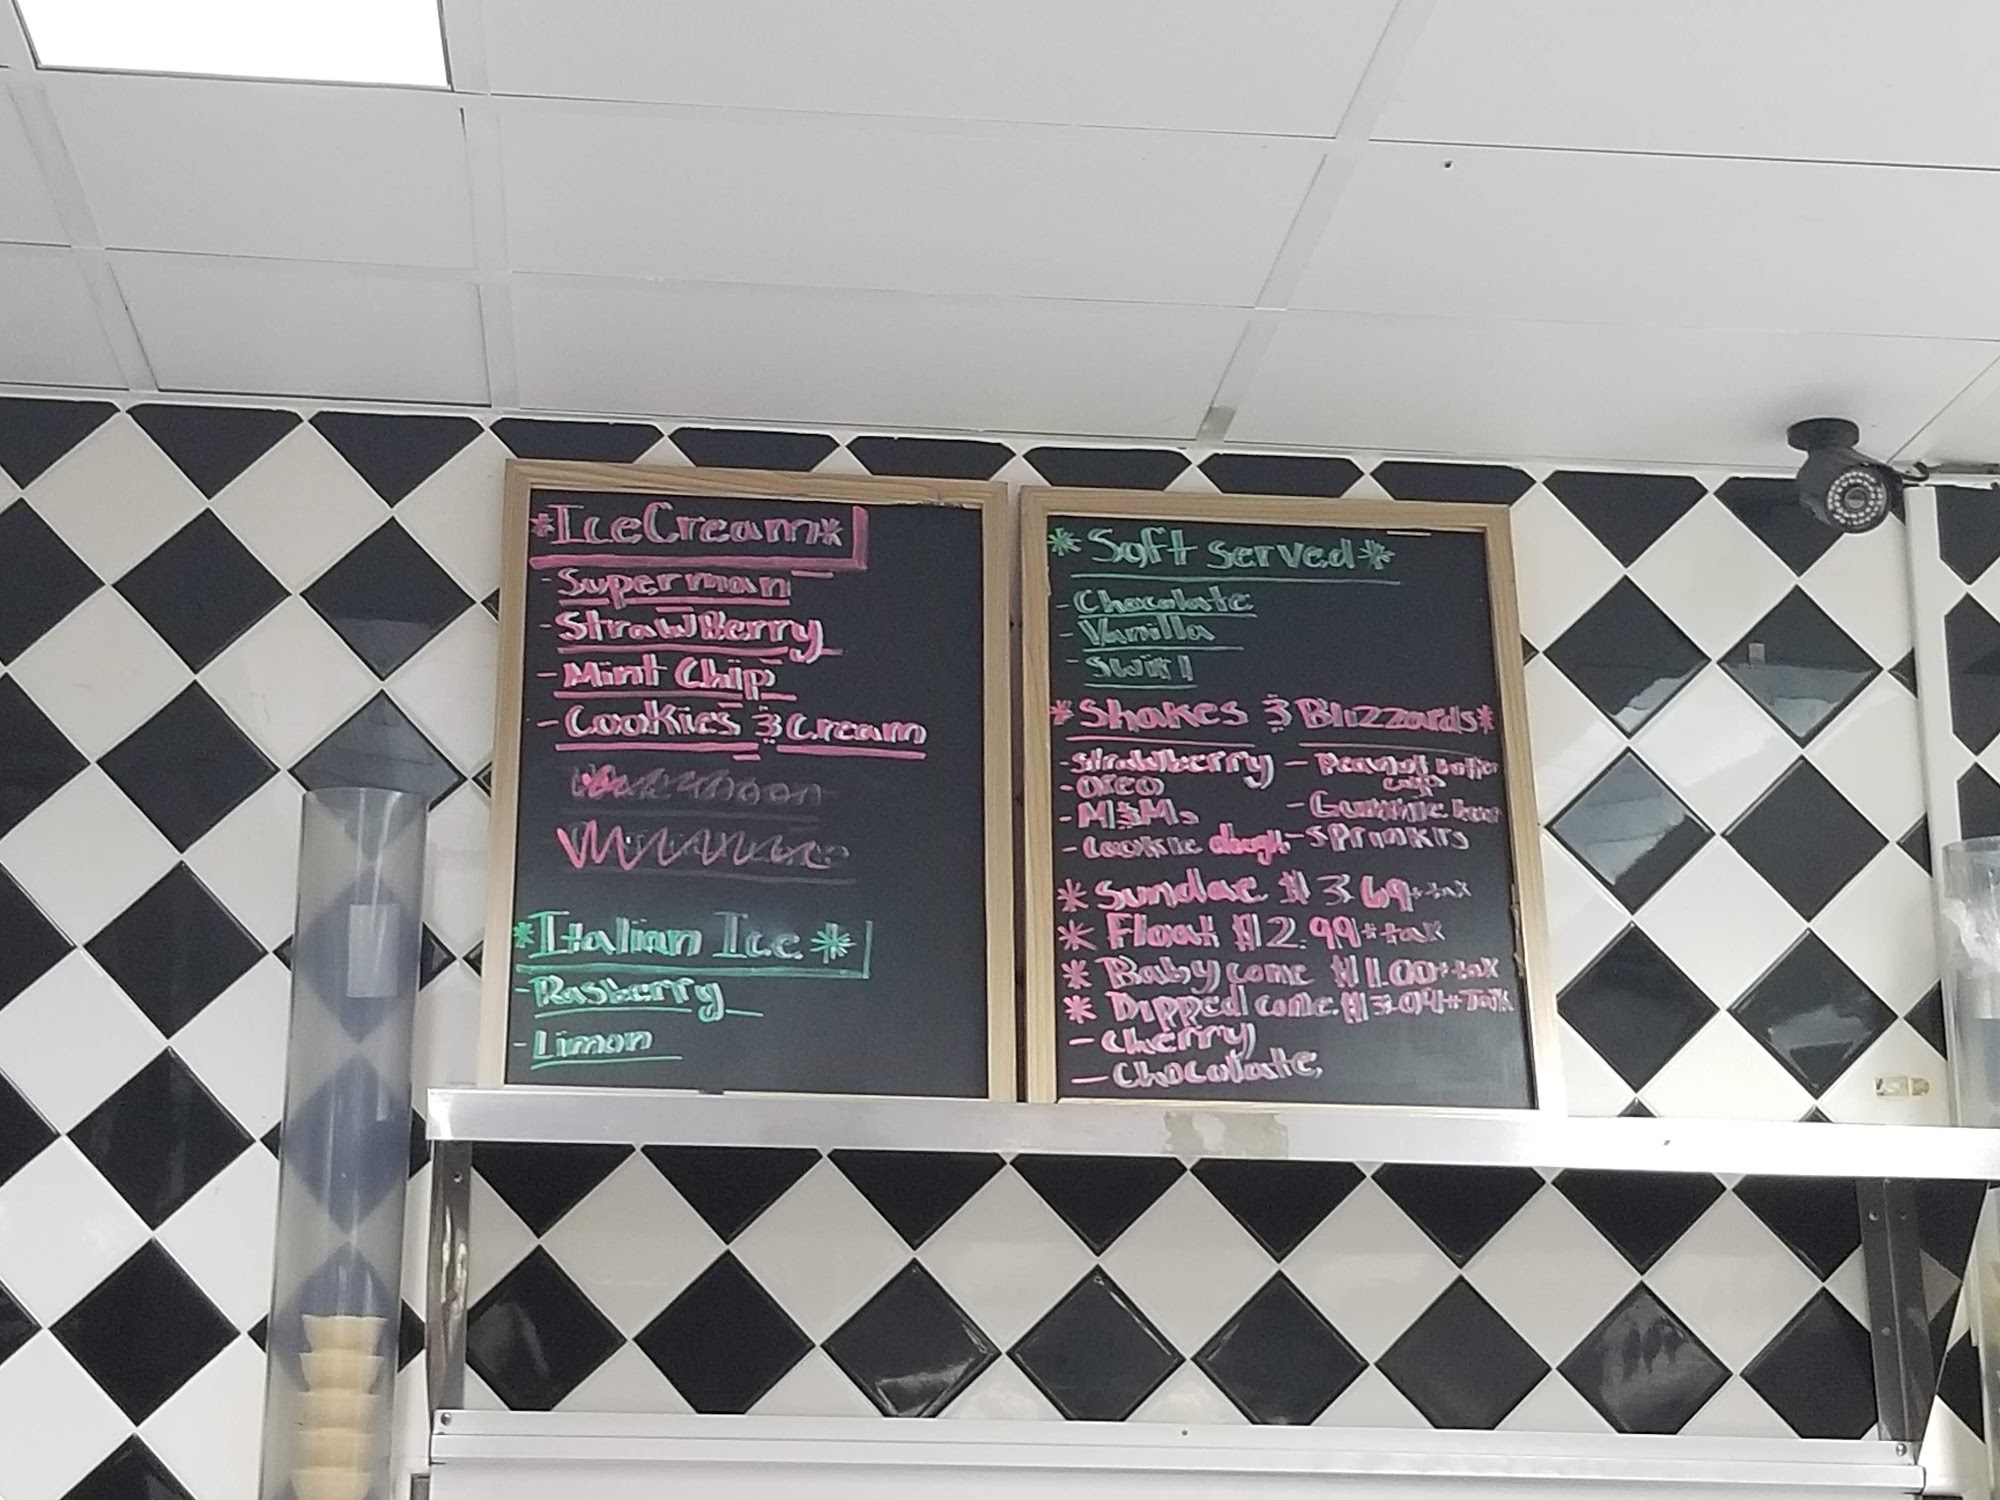 *Ice Cream*
- Superman
- StrawBerry
- Mint Chip
- Cookies & Cream
*Italian Ice*
- Rasberry
- Limon
* Soft served *
- Chocolate
- Vanilla
- Swirl
* Shakes & Blizzards *
- Strawberry - Peanut Butter
- oreo cup
- M&Ms - Gummie bear
- cookie dough - sprinkls
* Sundae $3.69 + tax
* Float $2.99 + tax
* Baby cone $1.00 + tax
* Dipped cone $3.04 + Tax
- Cherry
- Chocolate